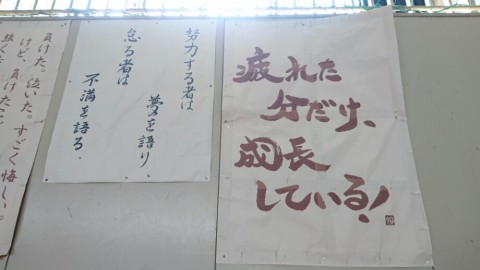 疲れた
分だけ、
成長
している!
努力する者は
夢を語り、
怠る者は
不満を語る.
負けた。泣いた。すごく悔しい。
けど、負けたこ